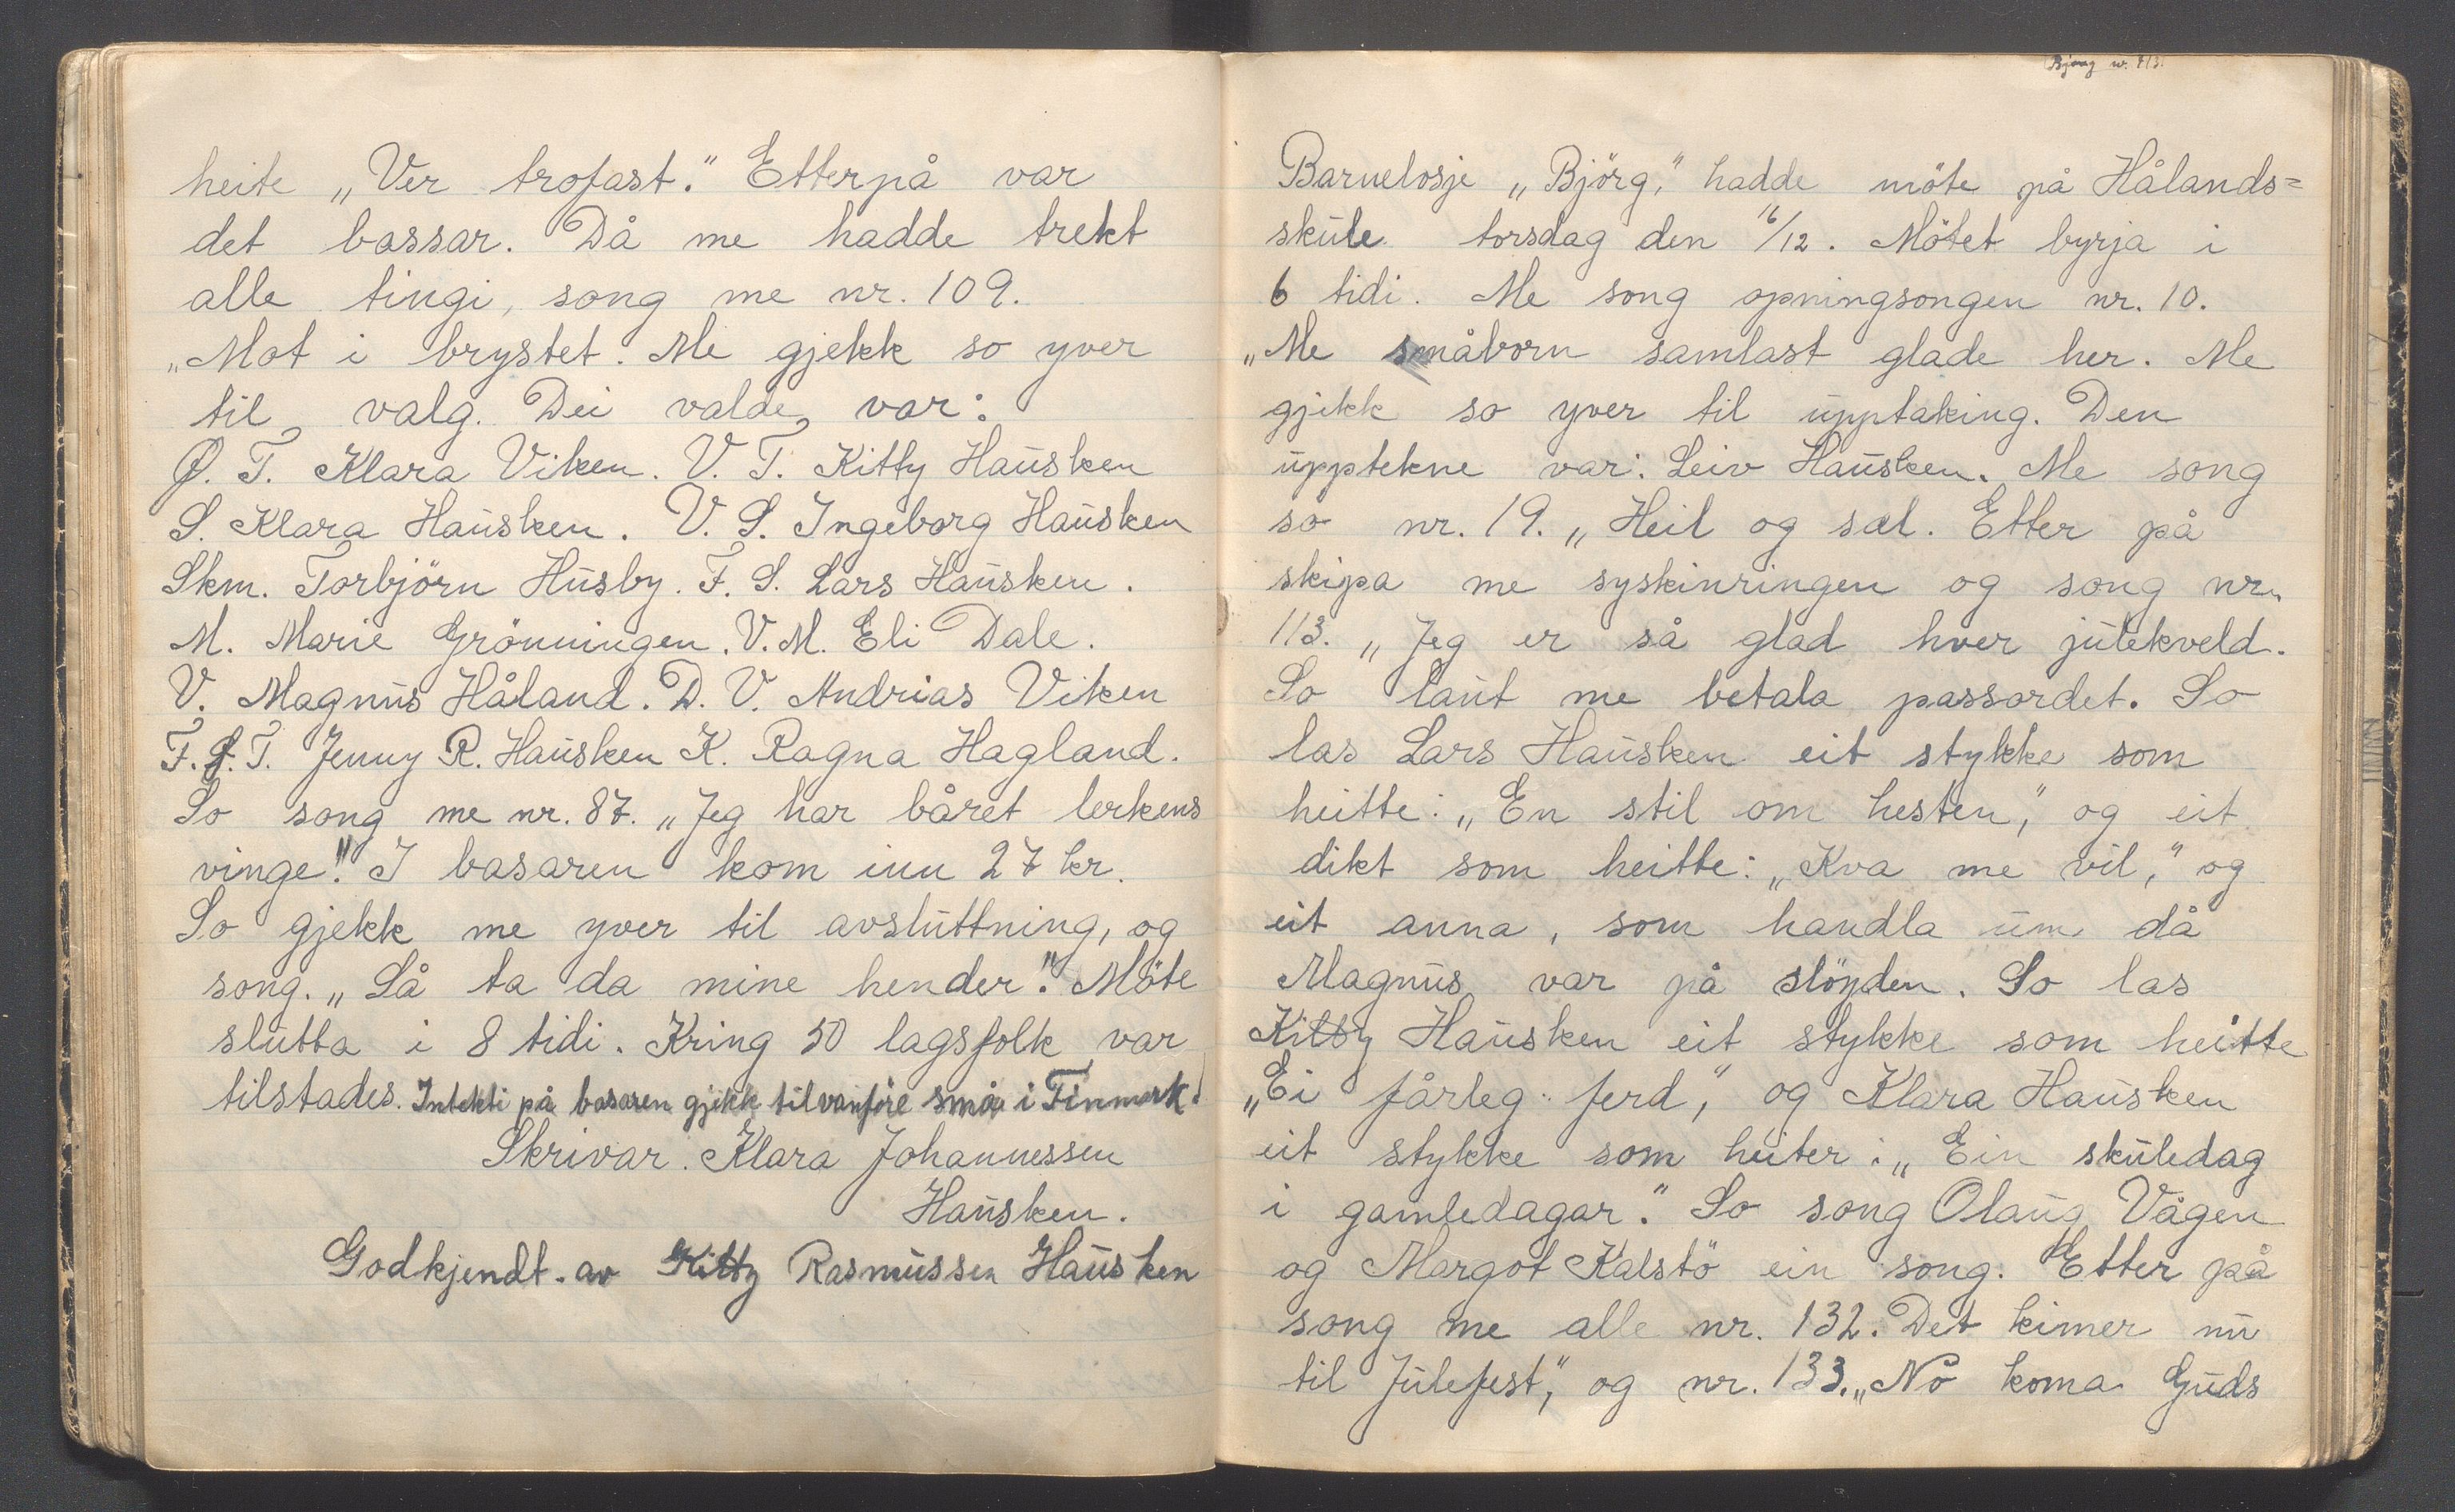 heite „Ver trofast." Etterpå var
det bassar. Då me hadde trekt
alle tingi, song me nr. 109.
„Mot i brystet. Me gjekk so yver
til valg. Dei valde var:
Ø. T. Klara Viken. V. T. Kitty Hausken
S. Klara Hausken. V. S. Ingeborg Hausken
Skm. Torbjörn Husby. F. S. Lars Hausken.
M. Marie Grönningen. V. M. Eli Dale.
V. Magnus Håland. D. V. Andrias Viken
F. Ø. T. Jenny R. Hausken K. Ragna Hagland.
So song me nr. 87. „Jeg har båret lerkens
vinge." I basaren kom inn 27 kr.
So gjekk me yver til avsluttning, og
song. „Så ta da mine hender." Möte
slutta i 8 tidi. Kring 50 lagsfolk var
tilstades. Intekti på basaren gjekk til vanföre små i Finmark.
Skrivar. Klara Johannessen
Hausken.
Godkjendt av Kitty Rasmussen Hausken
Barnelosje „Björg," hadde möte på Hålands=
skule torsdag den 16/12. Mötet byrja i
6 tidi. Me song opningsongen nr. 10.
„Me småborn samlast glade her. Me
gjekk so yver til upptaking. Den
upptekne var: Leiv Hausken. Me song
so nr. 19. „Heil og sæl. Etter på
skipa me syskinringen og song nr.
113. „Jeg er så glad hver julekveld.
So laut me betala passordet. So
las Lars Hausken eit stykke som
heitte: „En stil om hesten," og eit
dikt som heitte: „Kva me vil," og
eit anna, som handla um då
Magnus var på slöyden. So las
Kitty Hausken eit stykke som heitte
„Ei fårleg ferd," og Klara Hausken
eit stykke som heiter: „Ein skuledag
i gamledagar." So song Olaug Vågen
og Margot Kalstö ein song. Etter på
song me alle nr. 132. Det kimer nu
til Julefest," og nr. 133. „No koma Guds